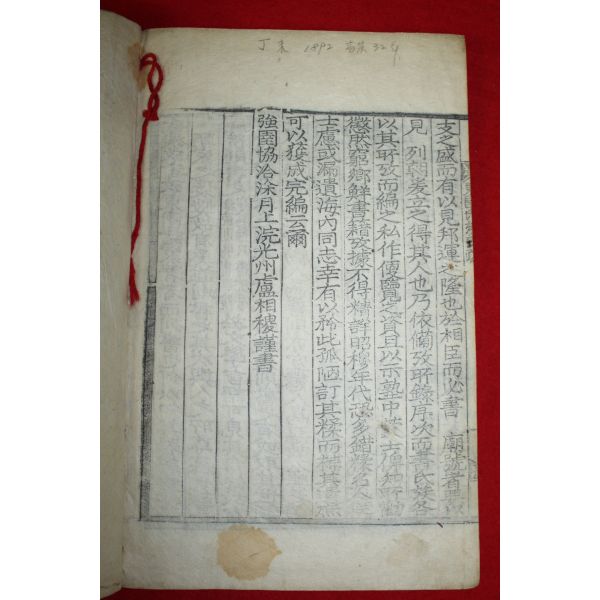 丁未 1892
支之盛而有以見邦運之隆也於相臣而必書 廟號者
見 列朝爰立之得其人也乃依備攷所錄序次而書氏族各
以其所攷而編之私作便覽之資且以示塾中士俾知所
懲然窮鄉鮮書籍攷據不得精詳昭穆年代恐多錯繆名人
士慮或漏遺海內同志幸有以矜此孤陋訂其繆而補其
可以獲成完編云爾
強圉協洽涂月上浣光州盧相稷謹書